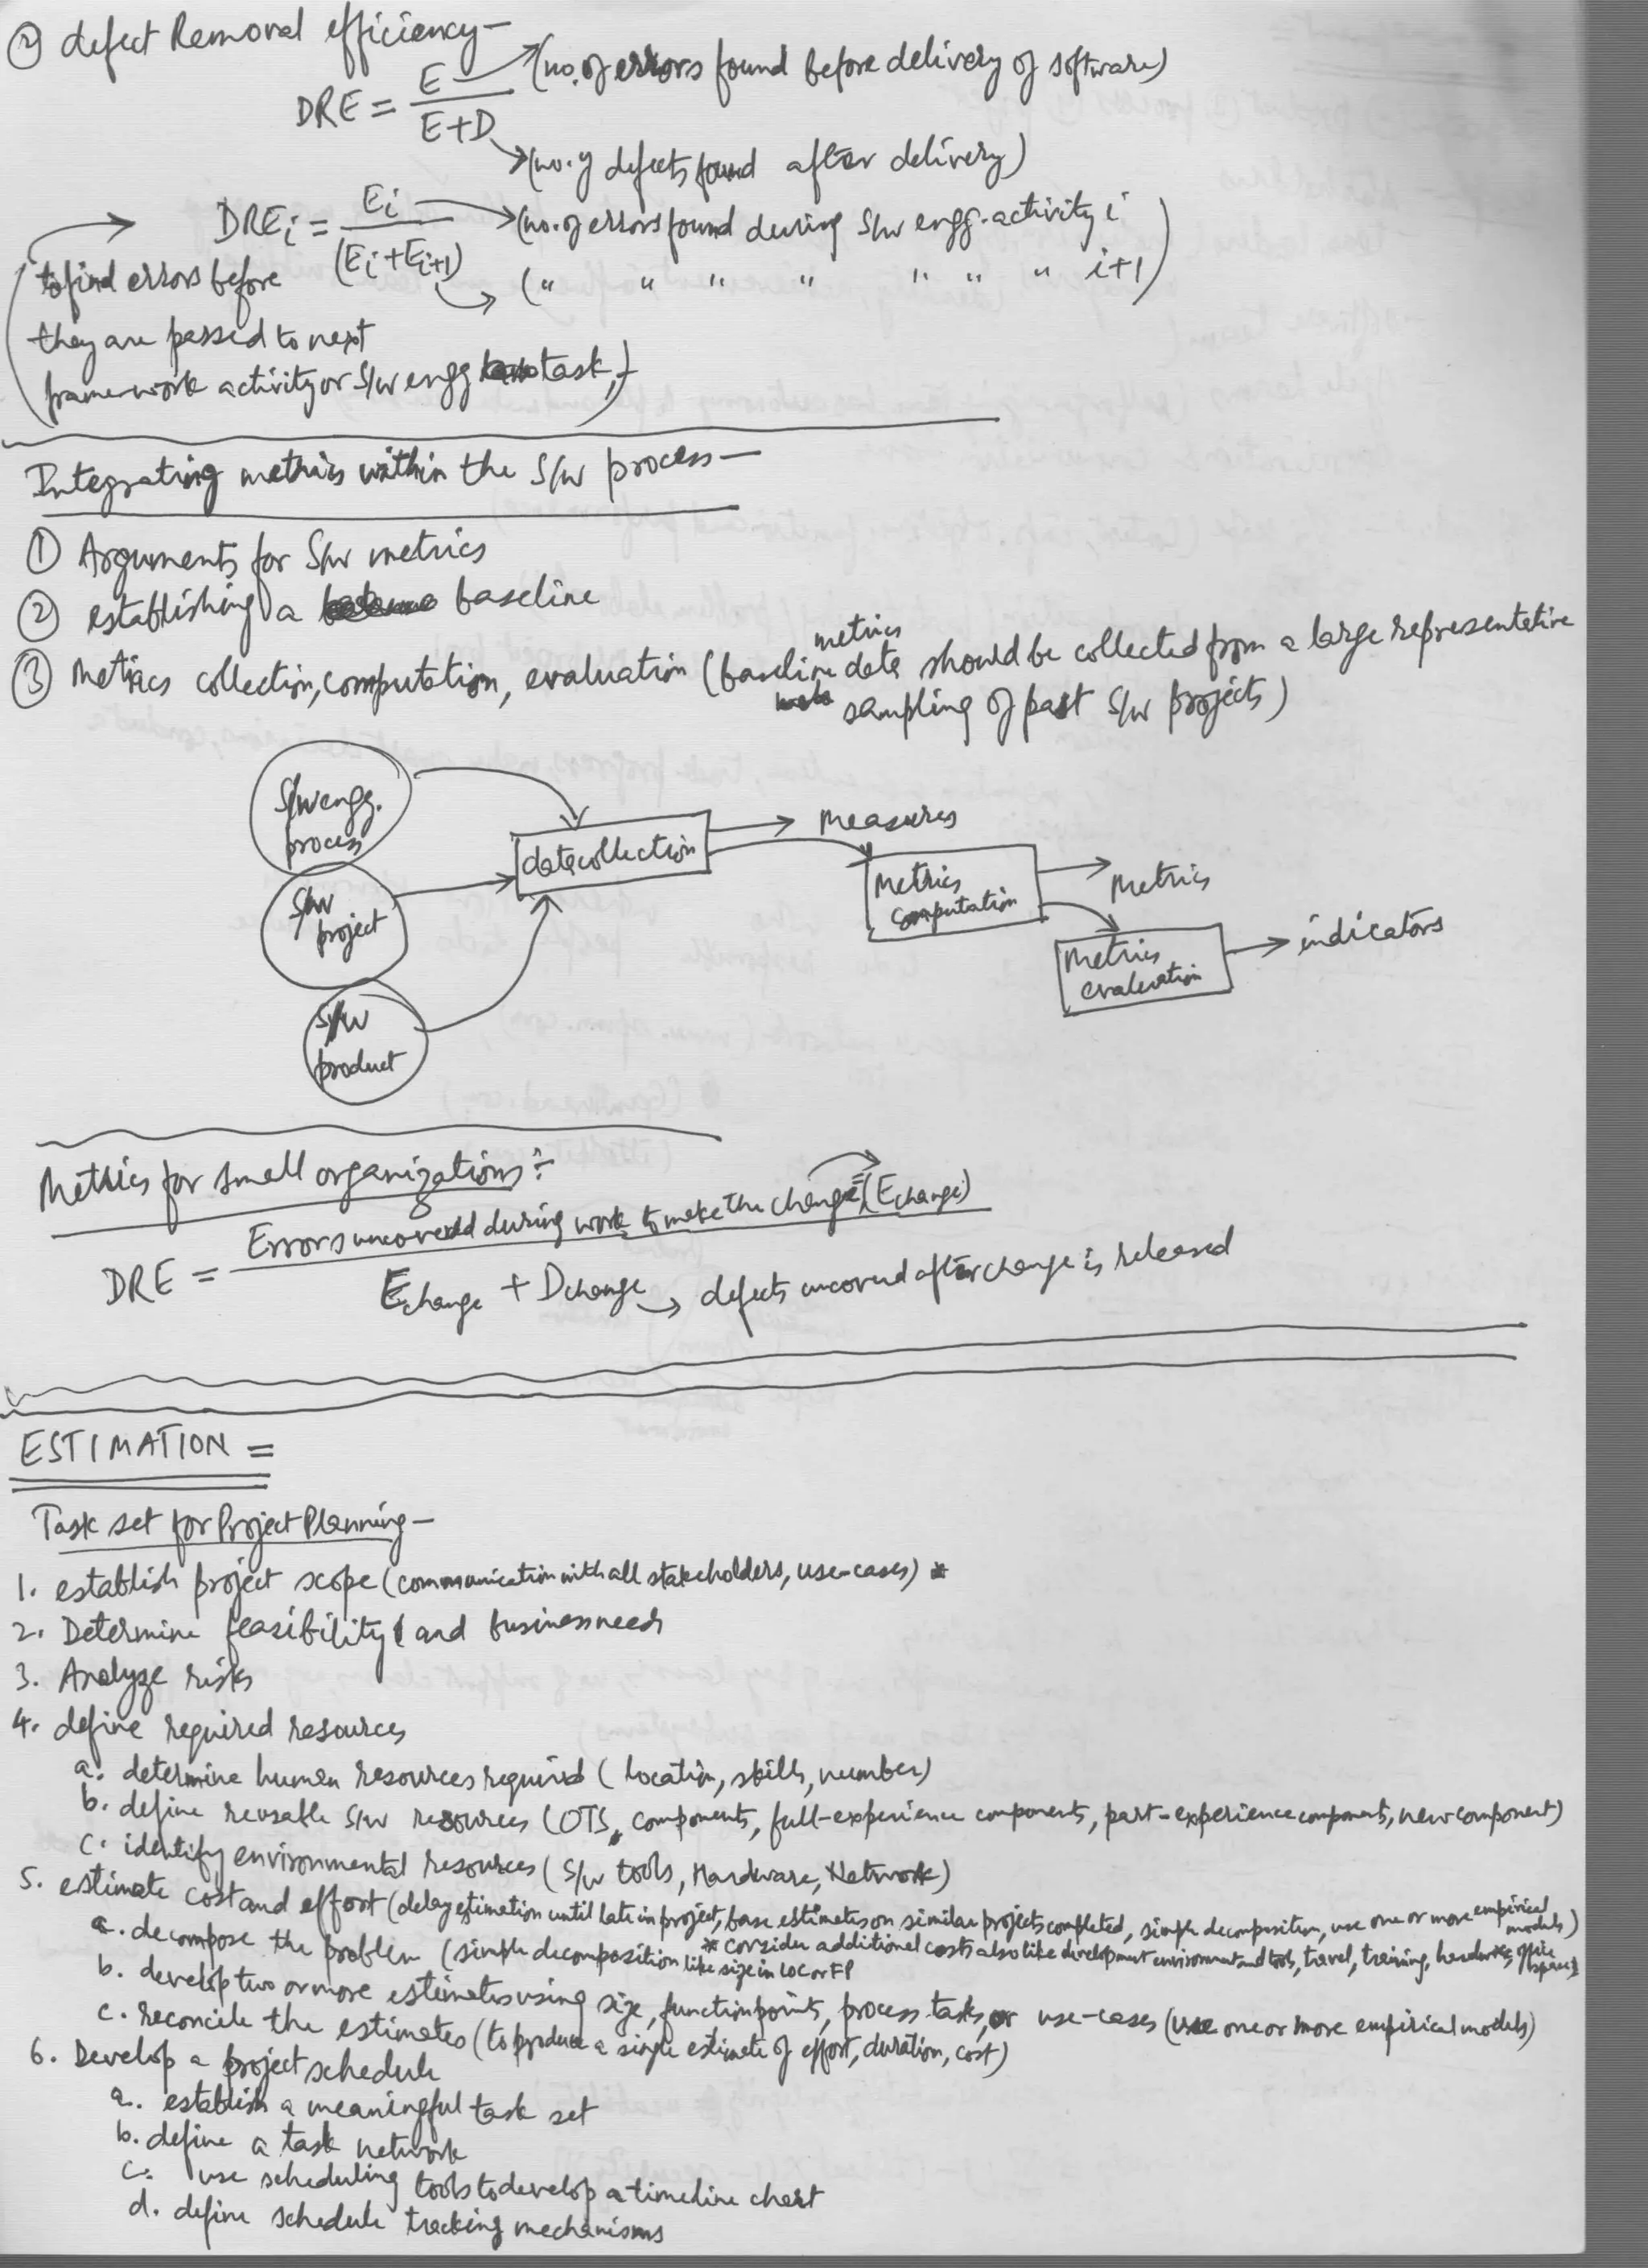 ② defect Removal efficiency—
DRE = E / (E+D)
(no. of errors found before delivery of software)
(no. of defects found after delivery)
DREi = Ei / (Ei+Ei+1)
(no. of errors found during S/w engg. activity i
( " " " " " " " i+1)
(to find errors before
they are passed to next
framework activity or S/w engg task)
Integrating metrics within the S/w process—
① Arguments for S/w metrics
② establishing a baseline
③ Metrics collection, computation, evaluation (baseline metrics data should be collected from a large representative
sampling of past S/w projects)
S/w engg.
process
S/w
project
S/w
product
data collection
measures
Metrics
computation
Metrics
Metrics
evaluation
indicators
Metrics for small organizations:-
DRE = Errors uncovered during work to make the change (Echange) / Echange + Dchange
defects uncovered after change is released
ESTIMATION =
Task set for Project Planning—
1. establish project scope (communication with all stakeholders, use-cases) *
2. Determine feasibility and business needs
3. Analyze risks
4. define required resources
a. determine human resources required (location, skills, number)
b. define reusable S/w resources (OTS, components, full-experience components, part-experience components, new component)
c. identify environmental resources (S/w tools, Hardware, Network)
5. estimate cost and effort (delay estimation until late in project, base estimates on similar projects completed, simple decomposition, use one or more empirical models)
* consider additional costs also like development environment and tools, travel, training, hardware, office space
a. decompose the problem (simple decomposition like size in LOC or FP
b. develop two or more estimates using size, function points, process tasks, or use-cases (use one or more empirical models)
c. reconcile the estimates (to produce a single estimate of effort, duration, cost)
6. Develop a project schedule
a. establish a meaningful task set
b. define a task network
c. use scheduling tools to develop a timeline chart
d. define schedule tracking mechanisms